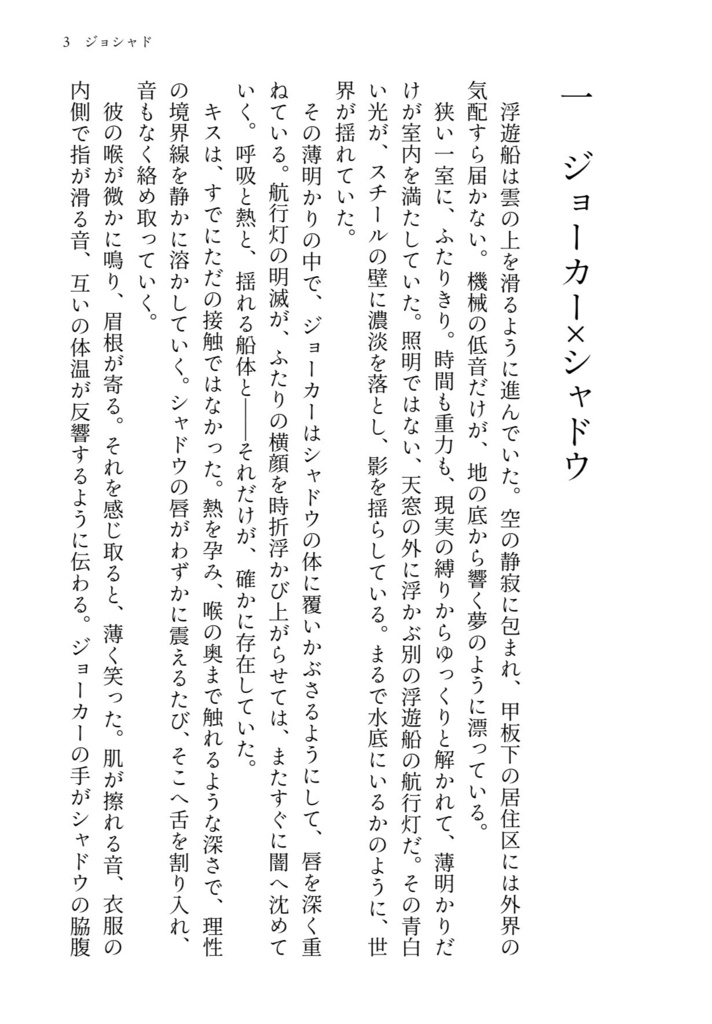 3 ジョシャド
一 ジョーカー×シャドウ
浮遊船は雲の上を滑るように進んでいた。空の静寂に包まれ、甲板下の居住区には外界の
気配すら届かない。機械の低音だけが、地の底から響く夢のように漂っている。
狭い一室に、ふたりきり。時間も重力も、現実の縛りからゆっくりと解かれて、薄明かりだ
けが室内を満たしていた。照明ではない、天窓の外に浮かぶ別の浮遊船の航行灯だ。その青白
い光が、スチールの壁に濃淡を落とし、影を揺らしている。まるで水底にいるかのように、世
界が揺れていた。
その薄明かりの中で、ジョーカーはシャドウの体に覆いかぶさるようにして、唇を深く重
ねている。航行灯の明滅が、ふたりの横顔を時折浮かび上がらせては、またすぐに闇へ沈めて
いく。呼吸と熱と、揺れる船体と――それだけが、確かに存在していた。
キスは、すでにただの接触ではなかった。熱を孕み、喉の奥まで触れるような深さで、理性
の境界線を静かに溶かしていく。シャドウの唇がわずかに震えるたび、そこへ舌を割り入れ、
音もなく絡め取っていく。
彼の喉が微かに鳴り、眉根が寄る。それを感じ取ると、薄く笑った。肌が擦れる音、衣服の
内側で指が滑る音、互いの体温が反響するように伝わる。ジョーカーの手がシャドウの脇腹